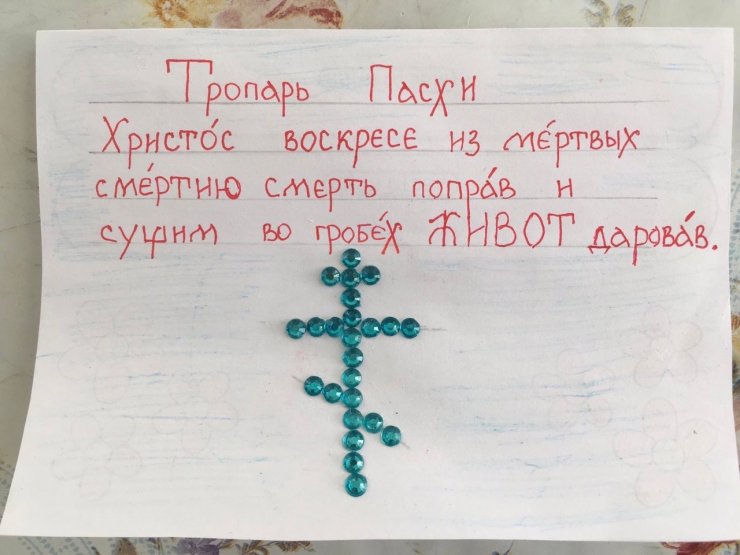 Тропарь Пасхи
Христо́с воскресе из ме́ртвых
сме́ртию смерть попра́в и
сущим во гробе́х ЖИВОТ дарова́в.